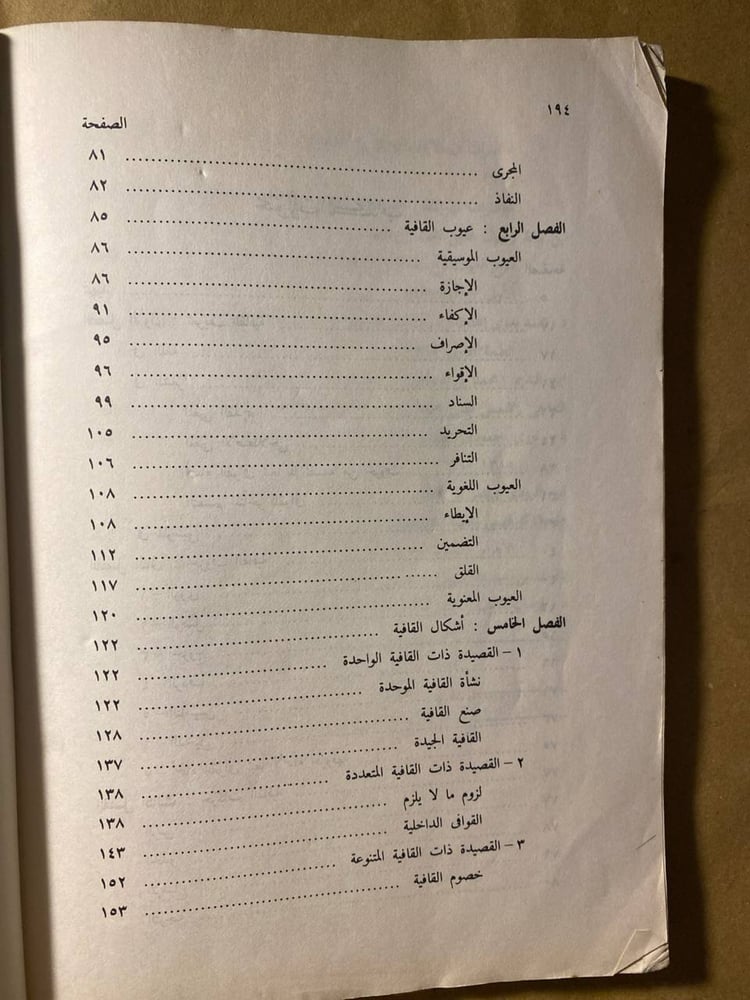 ١٩٤
الصفحة
المجرى ........ ٨١
النفاذ ........ ٨٢
الفصل الرابع : عيوب القافية ........ ٨٥
العيوب الموسيقية ........ ٨٦
الإجازة ........ ٨٦
الإكفاء ........ ٩١
الإصراف ........ ٩٥
الإقواء ........ ٩٦
السناد ........ ٩٩
التحريد ........ ١٠٥
التنافر ........ ١٠٦
العيوب اللغوية ........ ١٠٨
الإيطاء ........ ١٠٨
التضمين ........ ١١٢
القلق ........ ١١٧
العيوب المعنوية ........ ١٢٠
الفصل الخامس : أشكال القافية ........ ١٢٢
١ – القصيدة ذات القافية الواحدة ........ ١٢٢
نشأة القافية الموحدة ........ ١٢٢
صنع القافية ........ ١٢٨
القافية الجيدة ........ ١٣٧
٢ – القصيدة ذات القافية المتعددة ........ ١٣٨
لزوم ما لا يلزم ........ ١٣٨
القوافى الداخلية ........ ١٤٣
٣ – القصيدة ذات القافية المتنوعة ........ ١٥٢
خصوم القافية ........ ١٥٣